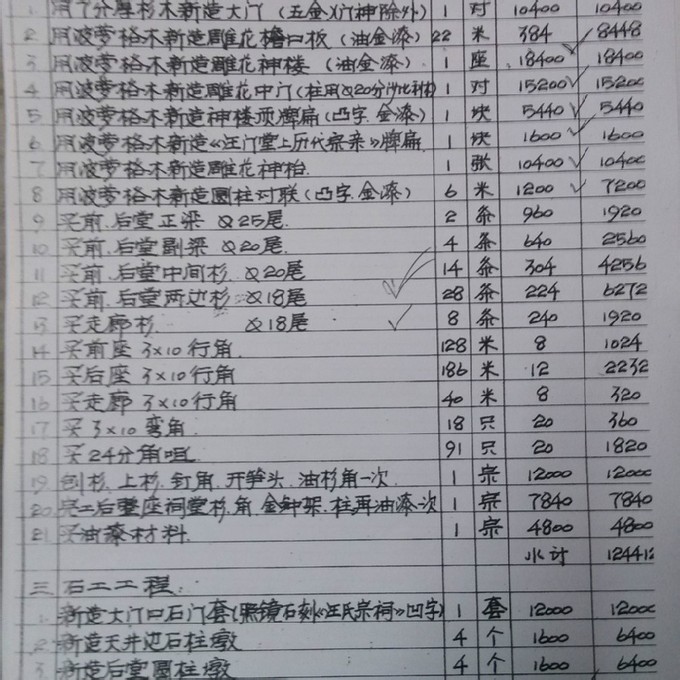 1. 用7分厚杉木新造大门（五金、门神除外） 1 对 10400 10400
2 用波萝格木新造雕花檐口板（油金漆） 22 米 384 8448
3 用波萝格木新造雕花神楼（油金漆） 1 座 18400 18400
4 用波萝格木新造雕花中门（柱用 20分沙比利 1 对 15200 15200
5 用波萝格木新造神楼顶牌扁（凸字.金漆） 1 块 5440 5440
6 用波萝格木新造《汪门堂上历代宗亲》牌扁 1 块 1600 1600
7 用波萝格木新造雕花神枱 1 张 10400 10400
8 用波萝格木新造圆柱对联（凸字.金漆） 6 米 1200 7200
9 买前.后堂正梁 25尾 2 条 960 1920
10 买前.后堂副梁 20尾 4 条 640 2560
11 买前.后堂中间杉 20尾 14 条 304 4256
12 买前.后堂两边杉 18尾 28 条 224 6272
13 买走廊杉 18尾 8 条 240 1920
14 买前座 3×10行角 128 米 8 1024
15 买后座 3×10行角 186 米 12 2232
16 买走廊 3×10行角 40 米 8 320
17 买 3×10弯角 18 只 20 360
18 买 24分角咀 91 只 20 1820
19 刨杉.上杉.钉角.开笋头.油杉角一次 1 宗 12000 12000
20 完工后整座祠堂杉.角.金钟架.柱再油漆一次 1 宗 7840 7840
21 买油漆材料 1 宗 4800 4800
小计 124412
三 石工工程：
1. 新造大门口石门套（照镜石刻《汪氏宗祠》凹字） 1 套 12000 12000
2 新造天井边石柱墩 4 个 1600 6400
3 新造后堂圆柱墩 4 个 1600 6400